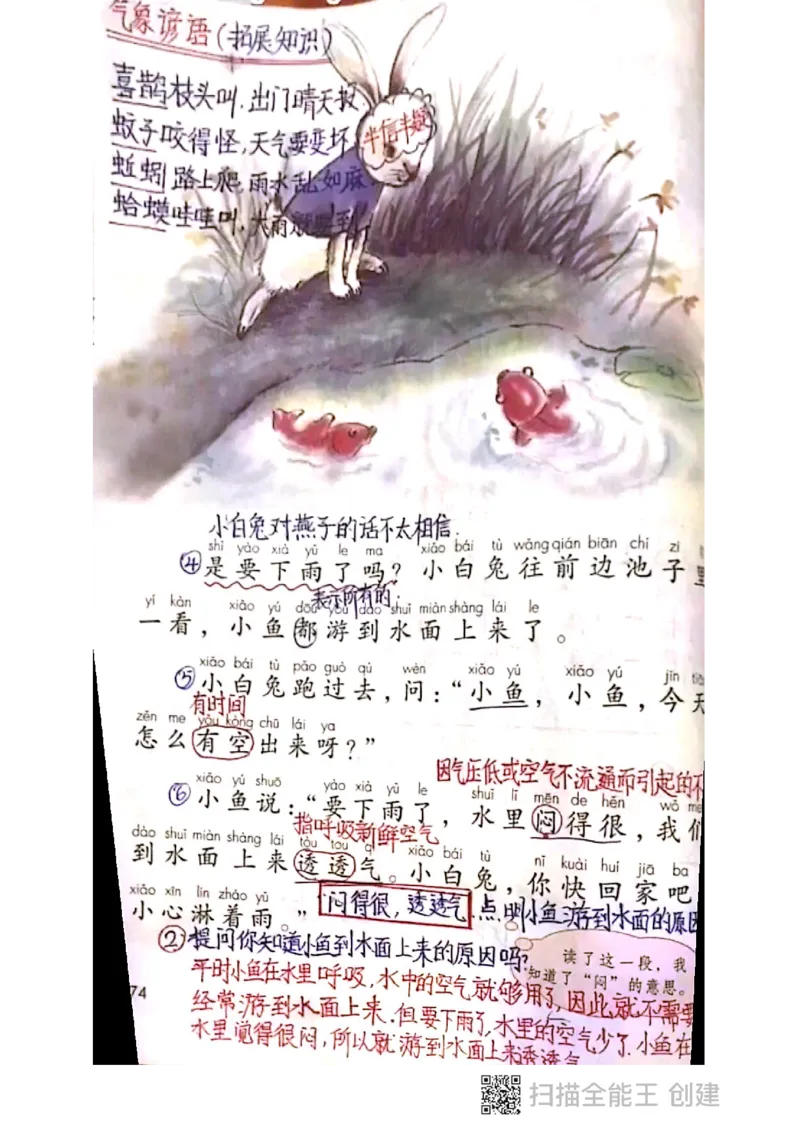 气象谚语(拓展知识)
喜鹊枝头叫,出门晴天报
半信半疑
蚊子咬得怪,天气要变坏
蚯蚓路上爬,雨水乱如麻
蛤蟆哇哇叫,大雨就要到
小白兔对燕子的话不太相信.
shì yào xià yǔ le ma xiǎo bái tù wǎng qián biān chí zi
④是要下雨了吗?小白兔往前边池子里
表示所有的
yí kàn xiǎo yú dōu yóu dào shuǐ miàn shàng lái le
一看,小鱼都游到水面上来了。
xiǎo bái tù pǎo guò qù wèn xiǎo yú xiǎo yú jīn tiā
⑤小白兔跑过去,问:“小鱼,小鱼,今天
有时间
zěn me yǒu kòng chū lái ya
怎么有空出来呀?”
因气压低或空气不流通而引起的不
xiǎo yú shuō yào xià yǔ le shuǐ lǐ mēn de hěn wǒ me
⑥小鱼说:“要下雨了,水里闷得很,我们
指呼吸新鲜空气
dào shuǐ miàn shàng lái tòu tou qì xiǎo bái tù nǐ kuài huí jiā ba
到水面上来透透气。小白兔,你快回家吧,
xiǎo xīn lín zháo yǔ
小心淋着雨。”
闷得很,透透气.点明小鱼游到水面的原因
②提问你知道小鱼到水面上来的原因吗?
读了这一段,我
知道了“闷”的意思。
平时小鱼在水里呼吸,水中的空气就够用了,因此就不需要
74
经常游到水面上来.但要下雨了,水里的空气少了.小鱼在
水里觉得很闷,所以就游到水面上来透透气
扫描全能王 创建